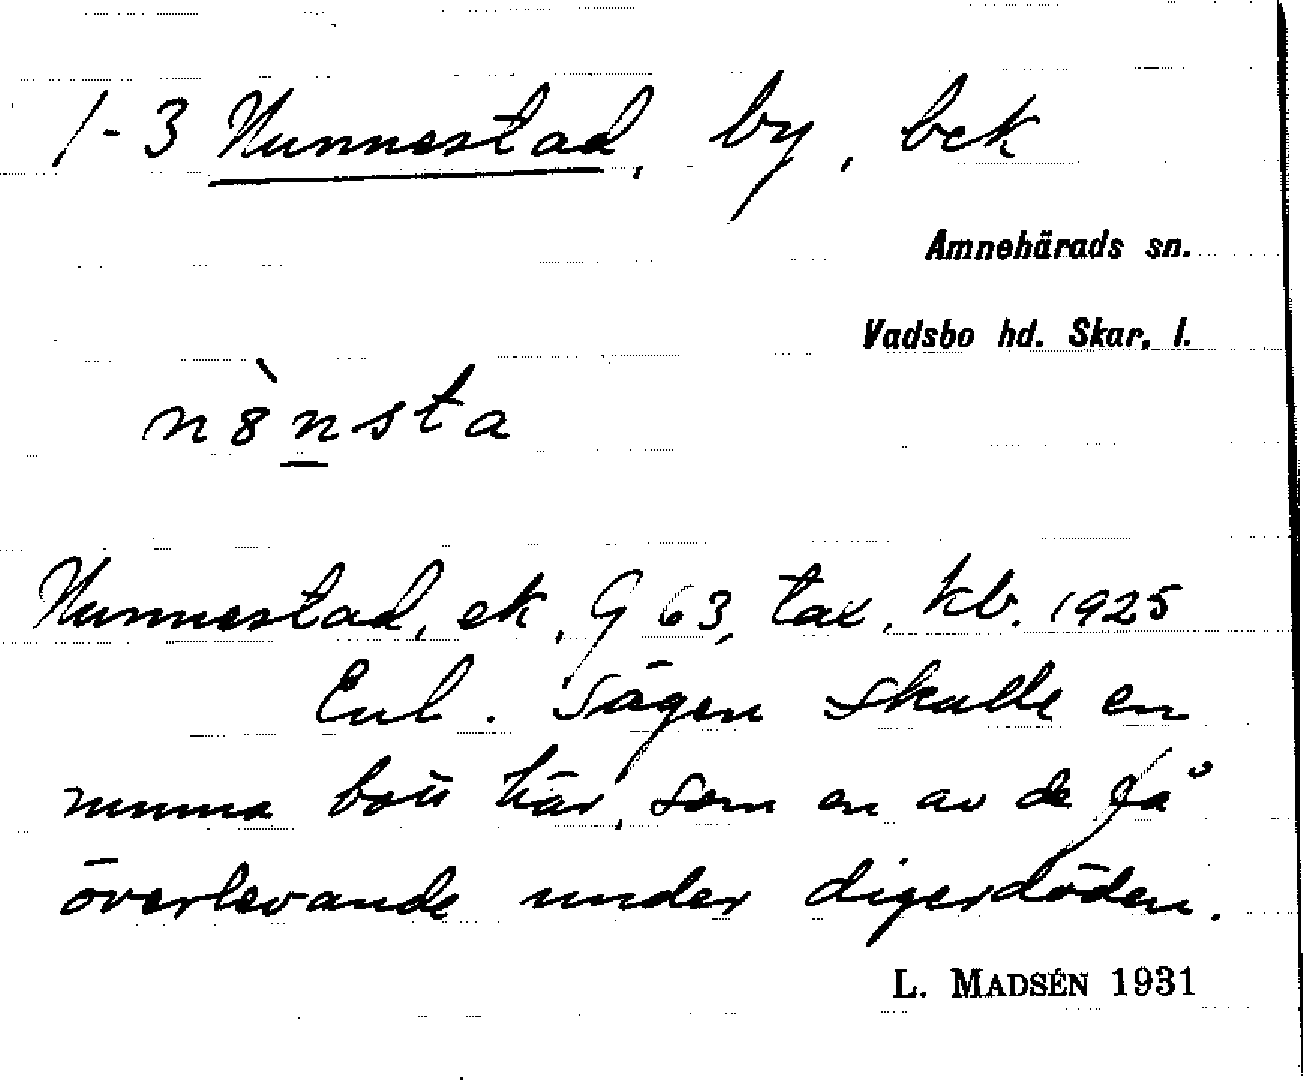 1-3 Nunnestad, by, bek
Amnehärads sn.
Vadsbo hd. Skar. l.
n8̀n̲sta
Nunnestad, ek, G 63, tax. kb. 1925
Enl. sägen skulle en
nunna bott här, som en av de få
överlevande under digerdöden.
L. MADSÉN 1931